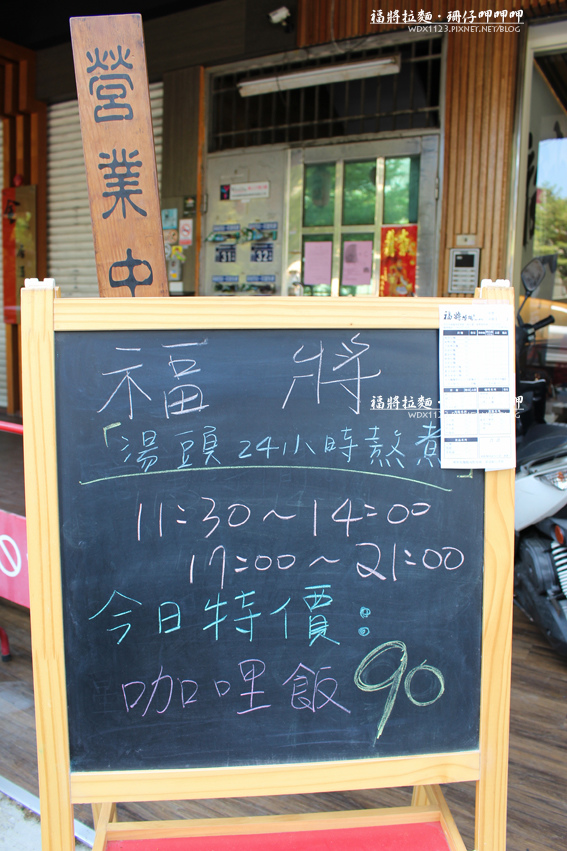 福將拉麵·珊仔呷呷呷
WDX1123.PIXNET.NET/BLOG
營業中
福將
福將拉麵·珊仔呷呷呷
WDX1123.PIXNET.NET/BLOG
「湯頭24小時熬煮」
11:30~14:00
17:00~21:00
今日特價:
咖哩飯90